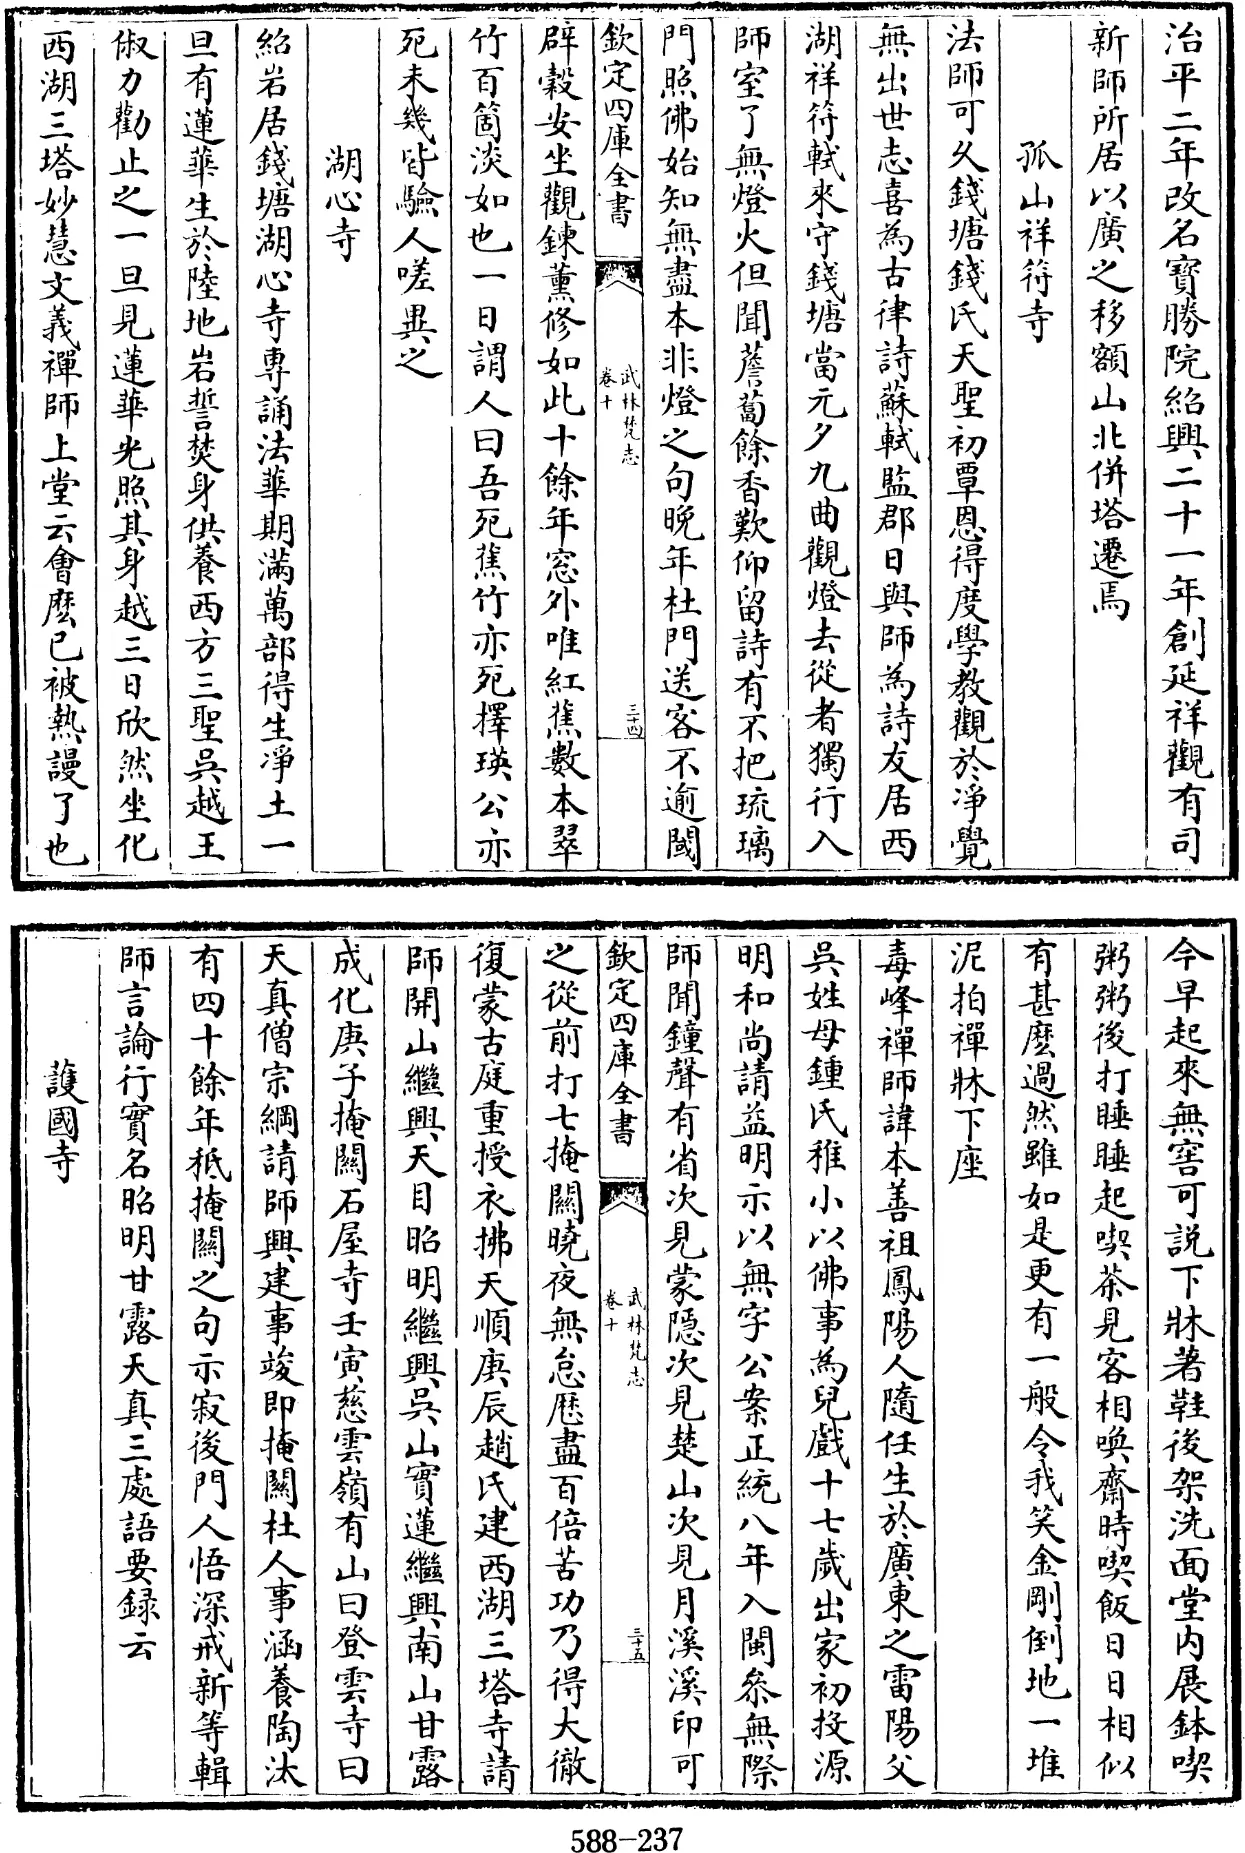 治平二年改名寶勝院紹興二十一年創延祥觀有司
新師所居以廣之移額山北併塔遷焉
孤山祥符寺
法師可久錢塘錢氏天聖初覃恩得度學教觀於淨覺
無出世志喜為古律詩蘇軾監郡日與師為詩友居西
湖祥符軾來守錢塘當元夕九曲觀燈去從者獨行入
師室了無燈火但聞薝蔔餘香歎仰留詩有不把琉璃
門照佛始知無盡本非燈之句晚年杜門送客不逾閾
欽定四庫全書
武林梵志
卷十
三十四
辟穀安坐觀鍊薰修如此十餘年窓外唯紅蕉數本翠
竹百箇淡如也一日謂人曰吾死蕉竹亦死擇瑛公亦
死未幾皆驗人嗟異之
湖心寺
紹岩居錢塘湖心寺專誦法華期滿萬部得生淨土一
旦有蓮華生於陸地岩誓焚身供養西方三聖吳越王
俶力勸止之一旦見蓮華光照其身越三日欣然坐化
西湖三塔妙慧文義禪師上堂云會麼已被熱謾了也
今早起來無窖可説下牀著鞋後架洗面堂内展鉢喫
粥粥後打睡睡起喫茶見客相喚齋時喫飯日日相似
有甚麼過然雖如是更有一般令我笑金剛倒地一堆
泥拍禪牀下座
毒峰禪師諱本善祖鳳陽人隨任生於廣東之雷陽父
吳姓母鍾氏稚小以佛事為兒戲十七歲出家初投源
明和尚請益明示以無字公案正統八年入閩叅無際
師聞鐘聲有省次見蒙隠次見楚山次見月溪溪印可
欽定四庫全書
武林梵志
卷十
三十五
之從前打七掩關曉夜無怠歷盡百倍苦功乃得大徹
復蒙古庭重授衣拂天順庚辰趙氏建西湖三塔寺請
師開山繼興天目昭明繼興吳山實蓮繼興南山甘露
成化庚子掩關石屋寺壬寅慈雲嶺有山曰登雲寺曰
天真僧宗綱請師興建事竣即掩關杜人事涵養陶汰
有四十餘年秪掩關之句示寂後門人悟深戒新等輯
師言論行實名昭明甘露天真三處語要録云
護國寺
588-237